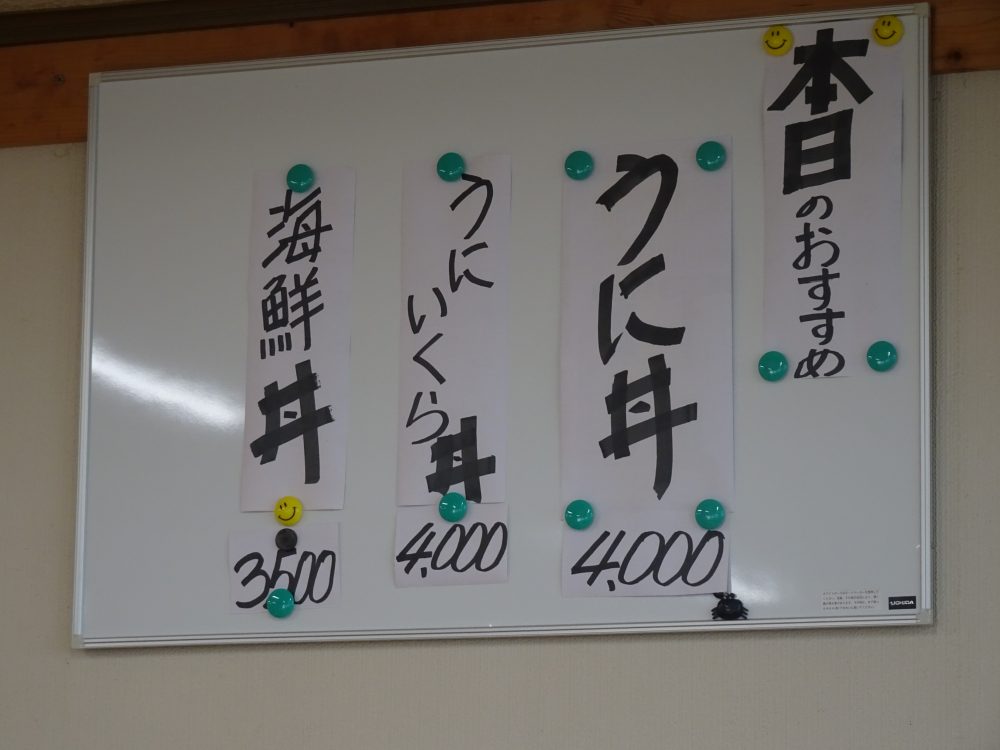 本日のおすすめ
うに丼
4,000
うに
いくら丼
4,000
海鮮丼
3,500
UCHIDA